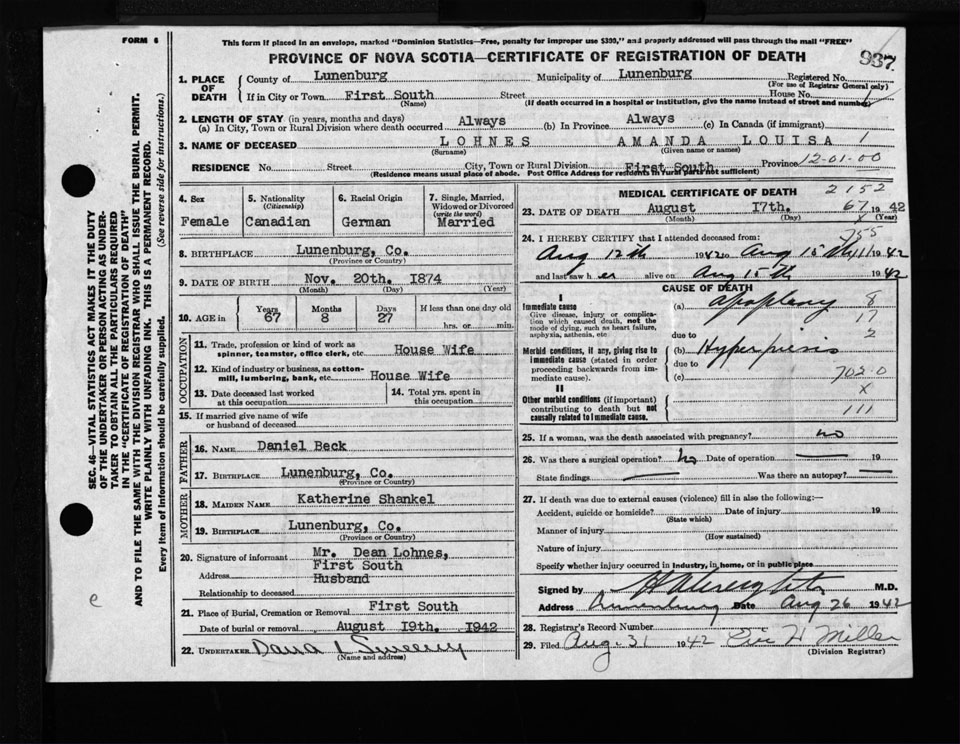 FORM 6
This form if placed in an envelope, marked "Dominion Statistics—Free, penalty for improper use $300," and properly addressed will pass through the mail "FREE"
PROVINCE OF NOVA SCOTIA—CERTIFICATE OF REGISTRATION OF DEATH
937
1. PLACE OF DEATH County of Lunenburg Municipality of Lunenburg Registered No.
(For use of Registrar General only)
If in City or Town First South Street House No.
(Name) (If death occurred in a hospital or institution, give the name instead of street and number)
2. LENGTH OF STAY (in years, months and days)
(a) In City, Town or Rural Division where death occurred Always (b) In Province Always (c) In Canada (if immigrant)
3. NAME OF DECEASED LOHNES AMANDA LOUISA 1
(Surname) (Given name or names)
RESIDENCE No. Street City, Town or Rural Division First South Province 12-01-00
(Residence means usual place of abode. Post Office Address for residents in rural parts not sufficient)
4. Sex Female
5. Nationality (Citizenship) Canadian
6. Racial Origin German
7. Single, Married, Widowed or Divorced (write the word) Married
8. BIRTHPLACE Lunenburg, Co.
(Province or Country)
9. DATE OF BIRTH Nov. 20th. 1874
(Month) (Day) (Year)
10. AGE in Years 67 Months 8 Days 27 If less than one day old
hrs. or min.
OCCUPATION
11. Trade, profession or kind of work as spinner, teamster, office clerk, etc House Wife
12. Kind of industry or business, as cotton-mill, lumbering, bank, etc. House Wife
13. Date deceased last worked at this occupation
14. Total yrs. spent in this occupation
15. If married give name of wife or husband of deceased
FATHER
16. NAME Daniel Beck
17. BIRTHPLACE Lunenburg, Co.
(Province or Country)
MOTHER
18. MAIDEN NAME Katherine Shankel
19. BIRTHPLACE Lunenburg, Co.
(Province or Country)
20. Signature of informant Mr. Dean Lohnes,
Address First South
Relationship to deceased Husband
21. Place of Burial, Cremation or Removal First South
Date of burial or removal August 19th. 1942
22. UNDERTAKER
(Name and address)
MEDICAL CERTIFICATE OF DEATH 2152
23. DATE OF DEATH August 17th. 67 1942
(Month) (Day) (Year)
24. I HEREBY CERTIFY that I attended deceased from: 755
Aug 12th 1942 to Aug 15th 1942
and last saw her alive on Aug 15th 1942
CAUSE OF DEATH
I
Immediate cause (a) apoplexy 8
Give disease, injury or complication which caused death, not the mode of dying, such as heart failure, asphyxia, asthenia, etc 17
due to 2
Morbid conditions, if any, giving rise to immediate cause (stated in order proceeding backwards from immediate cause). (b) Hyperpiesis
due to
(c) 702.0
II
X
Other morbid conditions (if important) contributing to death but not causally related to immediate cause. 111
25. If a woman, was the death associated with pregnancy? no
26. Was there a surgical operation? no Date of operation 19
State findings Was there an autopsy?
27. If death was due to external causes (violence) fill in also the following:—
Accident, suicide or homicide? Date of injury 19
(State which)
Manner of injury
(How sustained)
Nature of injury
Specify whether injury occurred in industry, in home, or in public place
Signed by M.D.
Address Lunenburg Date Aug 26 1942
28. Registrar's Record Number
29. Filed Aug. 31 1942 Miller
(Division Registrar)
SEC. 46—VITAL STATISTICS ACT MAKES IT THE DUTY
OF THE UNDERTAKER OR PERSON ACTING AS UNDER-
TAKER TO OBTAIN ALL THE PARTICULARS REQUIRED
IN THE "CERTIFICATE OF REGISTRATION OF DEATH"
AND TO FILE THE SAME WITH THE DIVISION REGISTRAR WHO SHALL ISSUE THE BURIAL PERMIT.
WRITE PLAINLY WITH UNFADING INK. THIS IS A PERMANENT RECORD.
Every item of information should be carefully supplied. (See reverse side for instructions.)
e